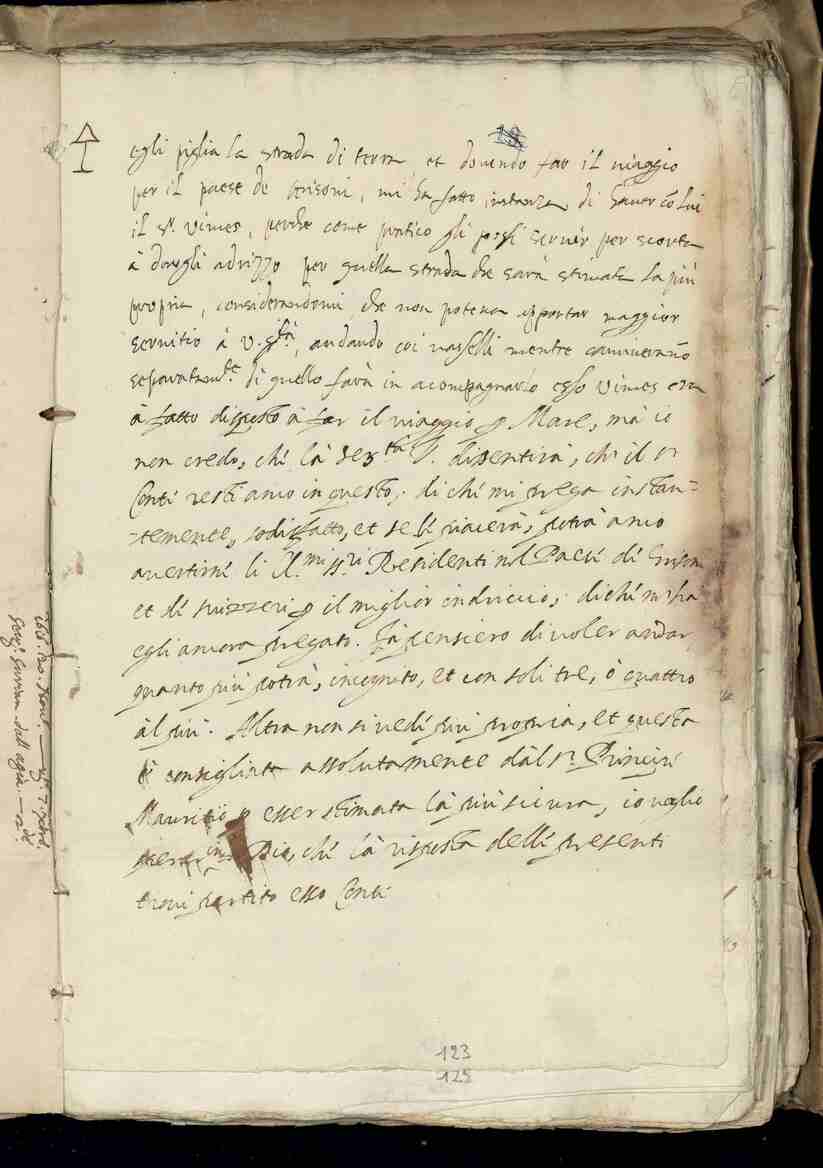 egli piglia la strada di terra et dovendo far il viaggio
per il paese de Grisoni, mi ha fatto instanza di haver co lui
il Sr. Vimes, perche come pratico gli possi servir per scorta
à dargli adrizzo per quella strada che sarà stimata la più
propria, considerandomi che non poteva apportar maggior
servitio à V. Stà, andando coi vasselli mentre caminerano
separatamte. di quello farà in acompagnarlo esso Vimes era
à fatto disposto à far il viaggio p Mare, mà io
non credo, chi la Sertà V. dissentirà, chi il Sr
Conti resti anco in questo, di chi mi prega instan=
=temente, sodisfatto, et se li piacerà, potrà anco
avertiri li Ill.mi ss.ri Residenti nel Paesi di Grisoni
et di Suizzeri p il miglior indriccio, di chi m'hà
egli ancora pregato. Fà pensiero di voler andar
quanto più potrà, incognito, et con soli tre, ò quattro
al più. Altra non si vedi più propria, et questa
è consigliata assolutamente dàl Sr. Principi
Mauritio p esser stimata la più sicura, io voglio
sperar in Dio, chi la risposta delli presenti
trovi partito esso Conti
123